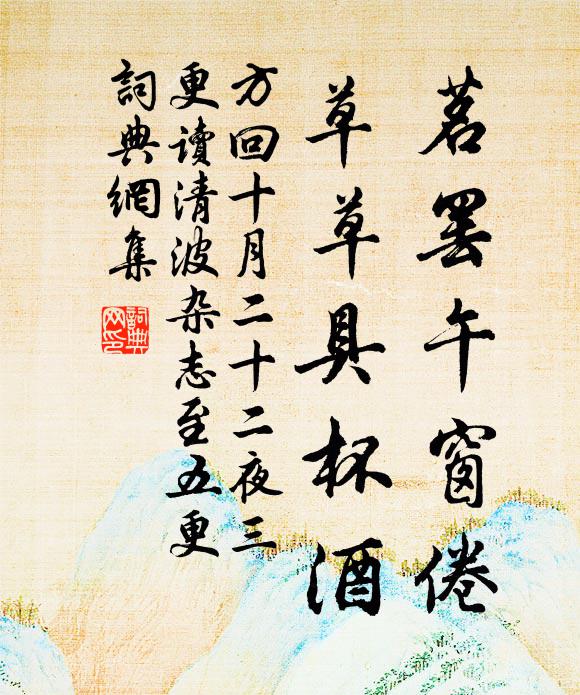 茗罢午窗倦
草草具杯酒
方回十月二十二夜三
更读清波杂志至五更
詞典網集
詞典網印